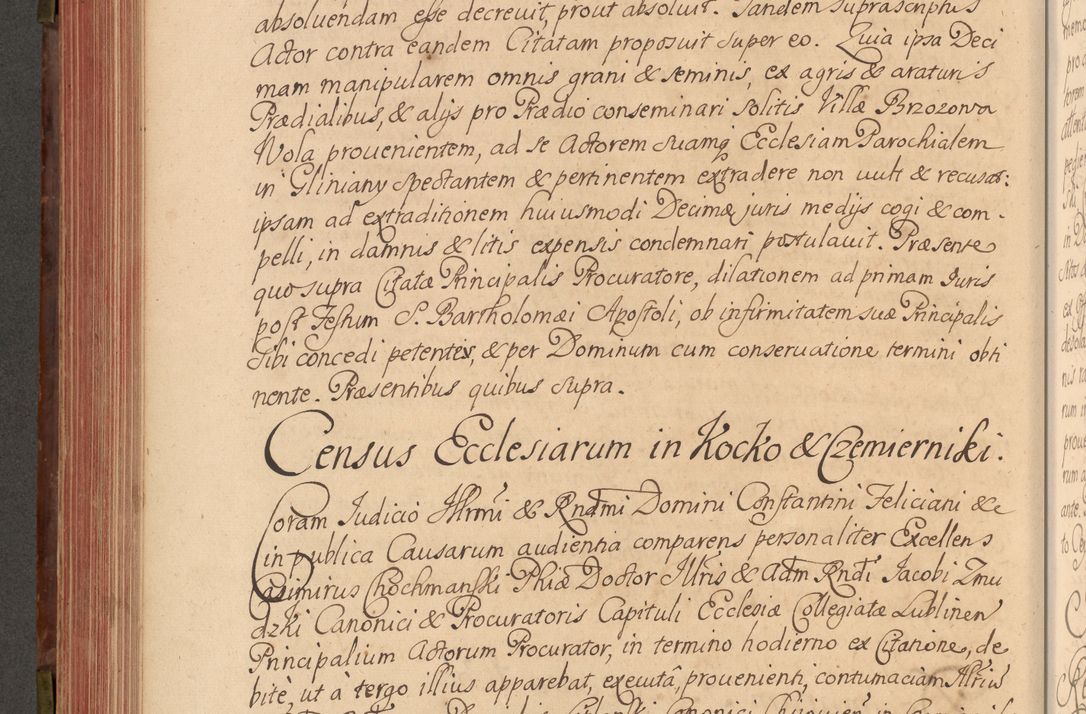 absoluendam esse decreuit, prout absoluit. Tandem suprascriptus
Actor contra eandem Citatam proposuit super eo. Quia ipsa Deci
mam manipularem omnis grani & seminis, ex agris & araturis
Prædialibus, & alijs pro Prædio conseminari solitis Villæ Brzozowa
Wola prouenientem, ad se Actorem suamq Ecclesiam Parochialem
in Gliniany spectantem & pertinentem extradere non uult & recusat:
ipsam ad extraditionem huiusmodi Decimæ juris medijs cogi & com-
pelli, in damnis & litis expensis condemnari postulauit. Præsente
quo supra Citatæ Principalis Procuratore, dilationem ad primam Juris
post Festum S. Bartholomæi Apostoli, ob infirmitatem suæ Principalis
sibi concedi petentis, & per Dominum cum conseruatione termini obti
nente. Præsentibus quibus supra.
Census Ecclesiarum in Kocko & Czemierniki.
Coram Judicio Illrmi & Rndmi Domini Constantini Feliciani &c
in publica Causarum audientia comparens personaliter Excellens
Casimirus Chochmanski Phiæ Doctor Illris & Adm Rndi Jacobi Zmu
dzki Canonici & Procuratoris Capituli Ecclesiæ Collegiatæ Lublinen
Principalium Actorum Procurator, in termino hodierno ex Citatione, de
bitè, ut à tergo illius apparebat, executâ, prouenienti, contumaciam Illrius